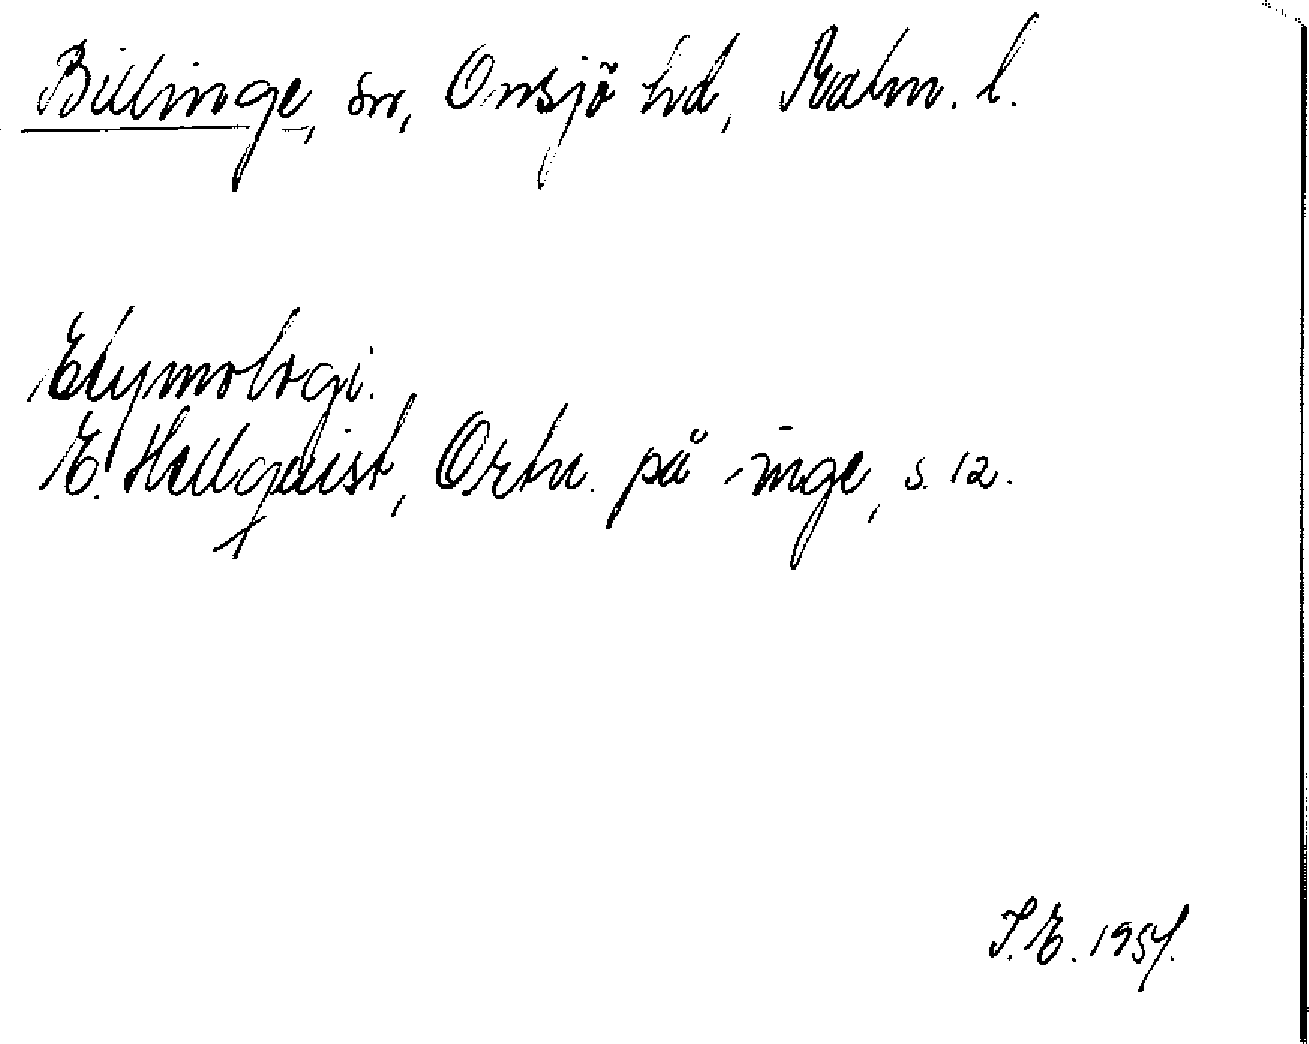 Billinge, sn, Onsjö hd, Malm. l.
Etymologi.
E. Hellquist, Ortn. på -inge, s. 12.
I.E. 1951.